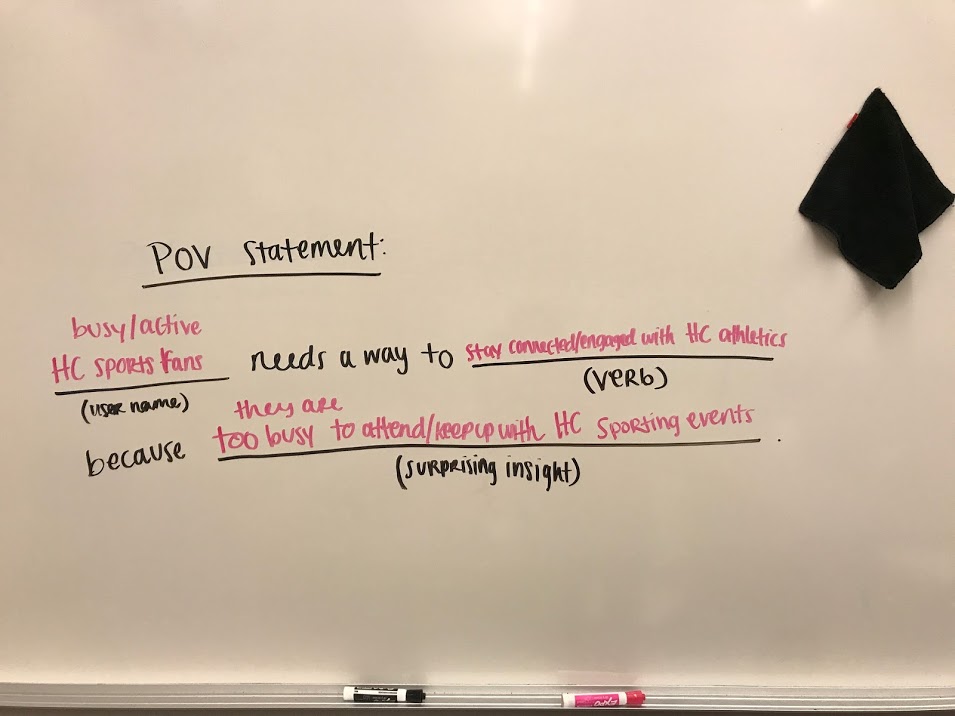 POV statement:
busy/active
HC sports fans needs a way to stay connected/engaged with HC athletics
(user name) (verb)
they are
because too busy to attend/keep up with HC sporting events.
(surprising insight)
EXPO